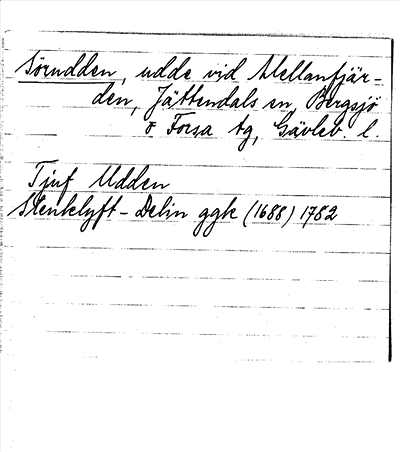 Sörudden, udde vid Mellanfjär-
den, Jättendals sn, Bergsjö
o Forsa tg, Gävleb. l.
Tjuf Udden
Stenklyft-Delin ggk (1688) 1782